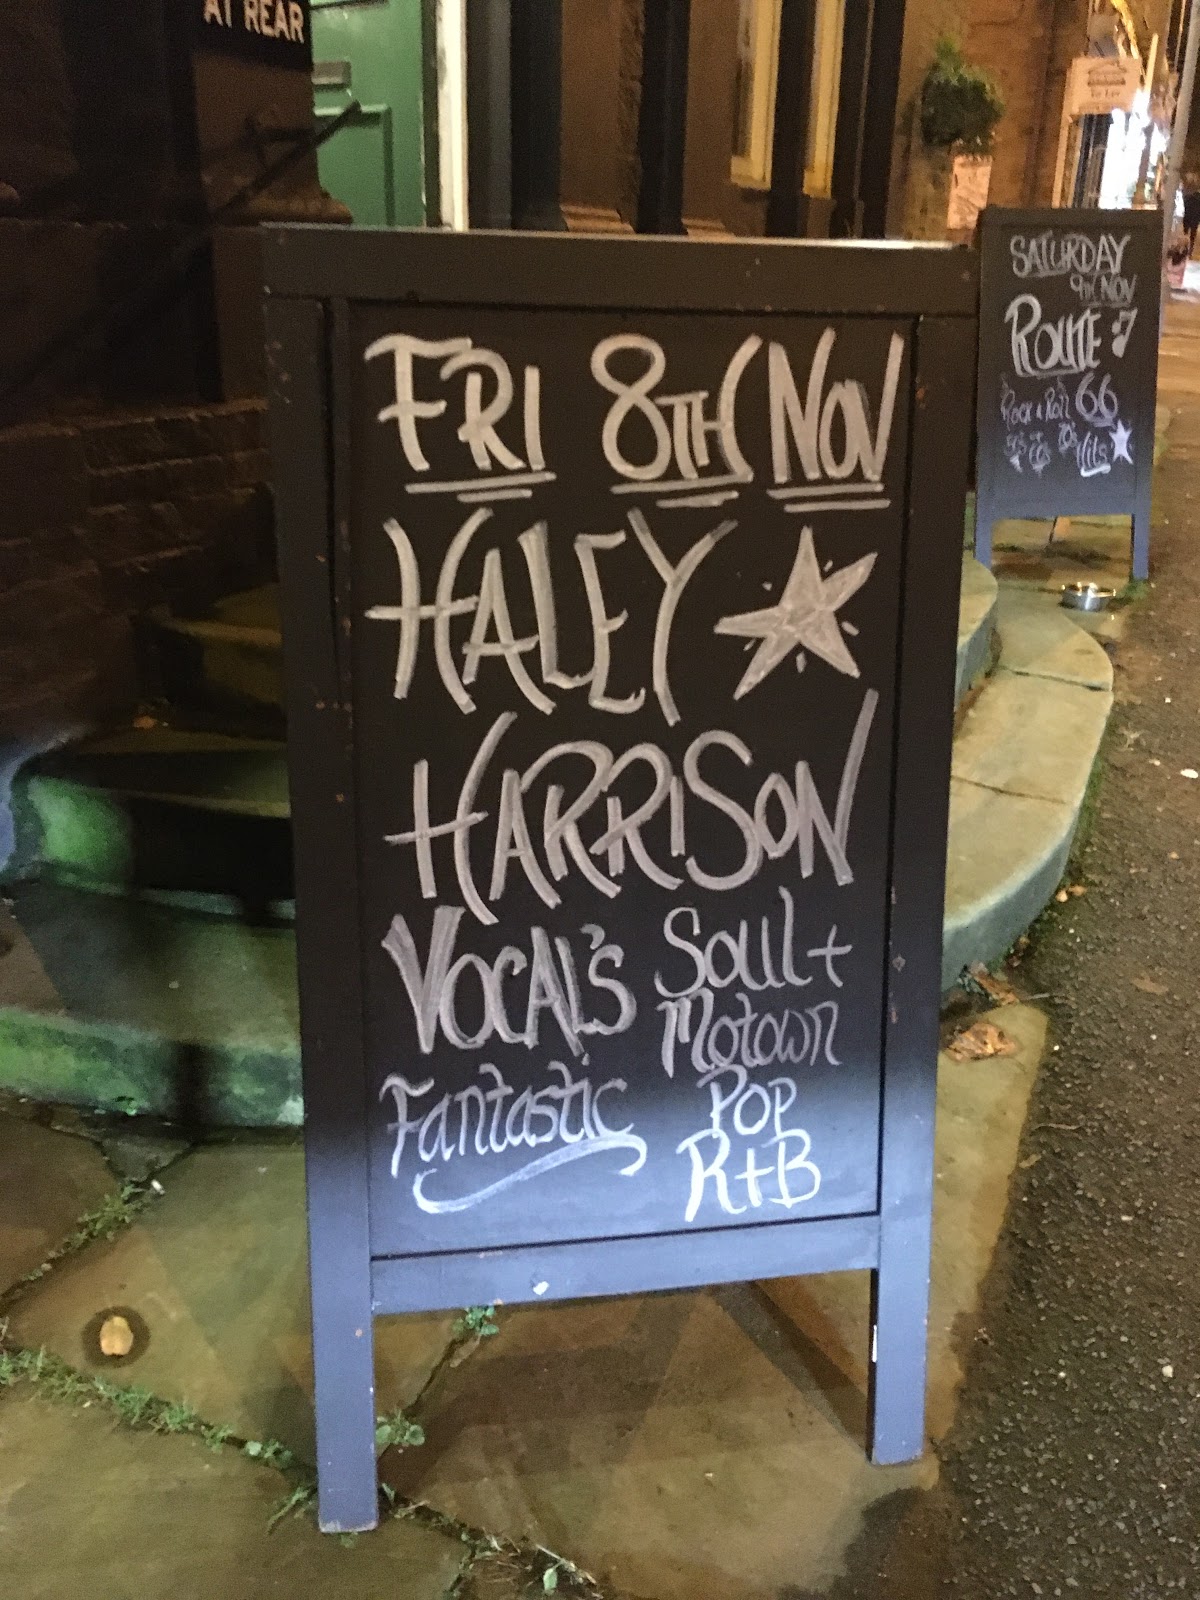 AT REAR
FRI 8TH NOV
HALEY
HARRISON
VOCAL'S
Fantastic
Soul +
Motown
POP
R+B
SATURDAY
9TH NOV
ROUTE
66
ROCK + ROLL
50's 60's 70's
Hits
To Let